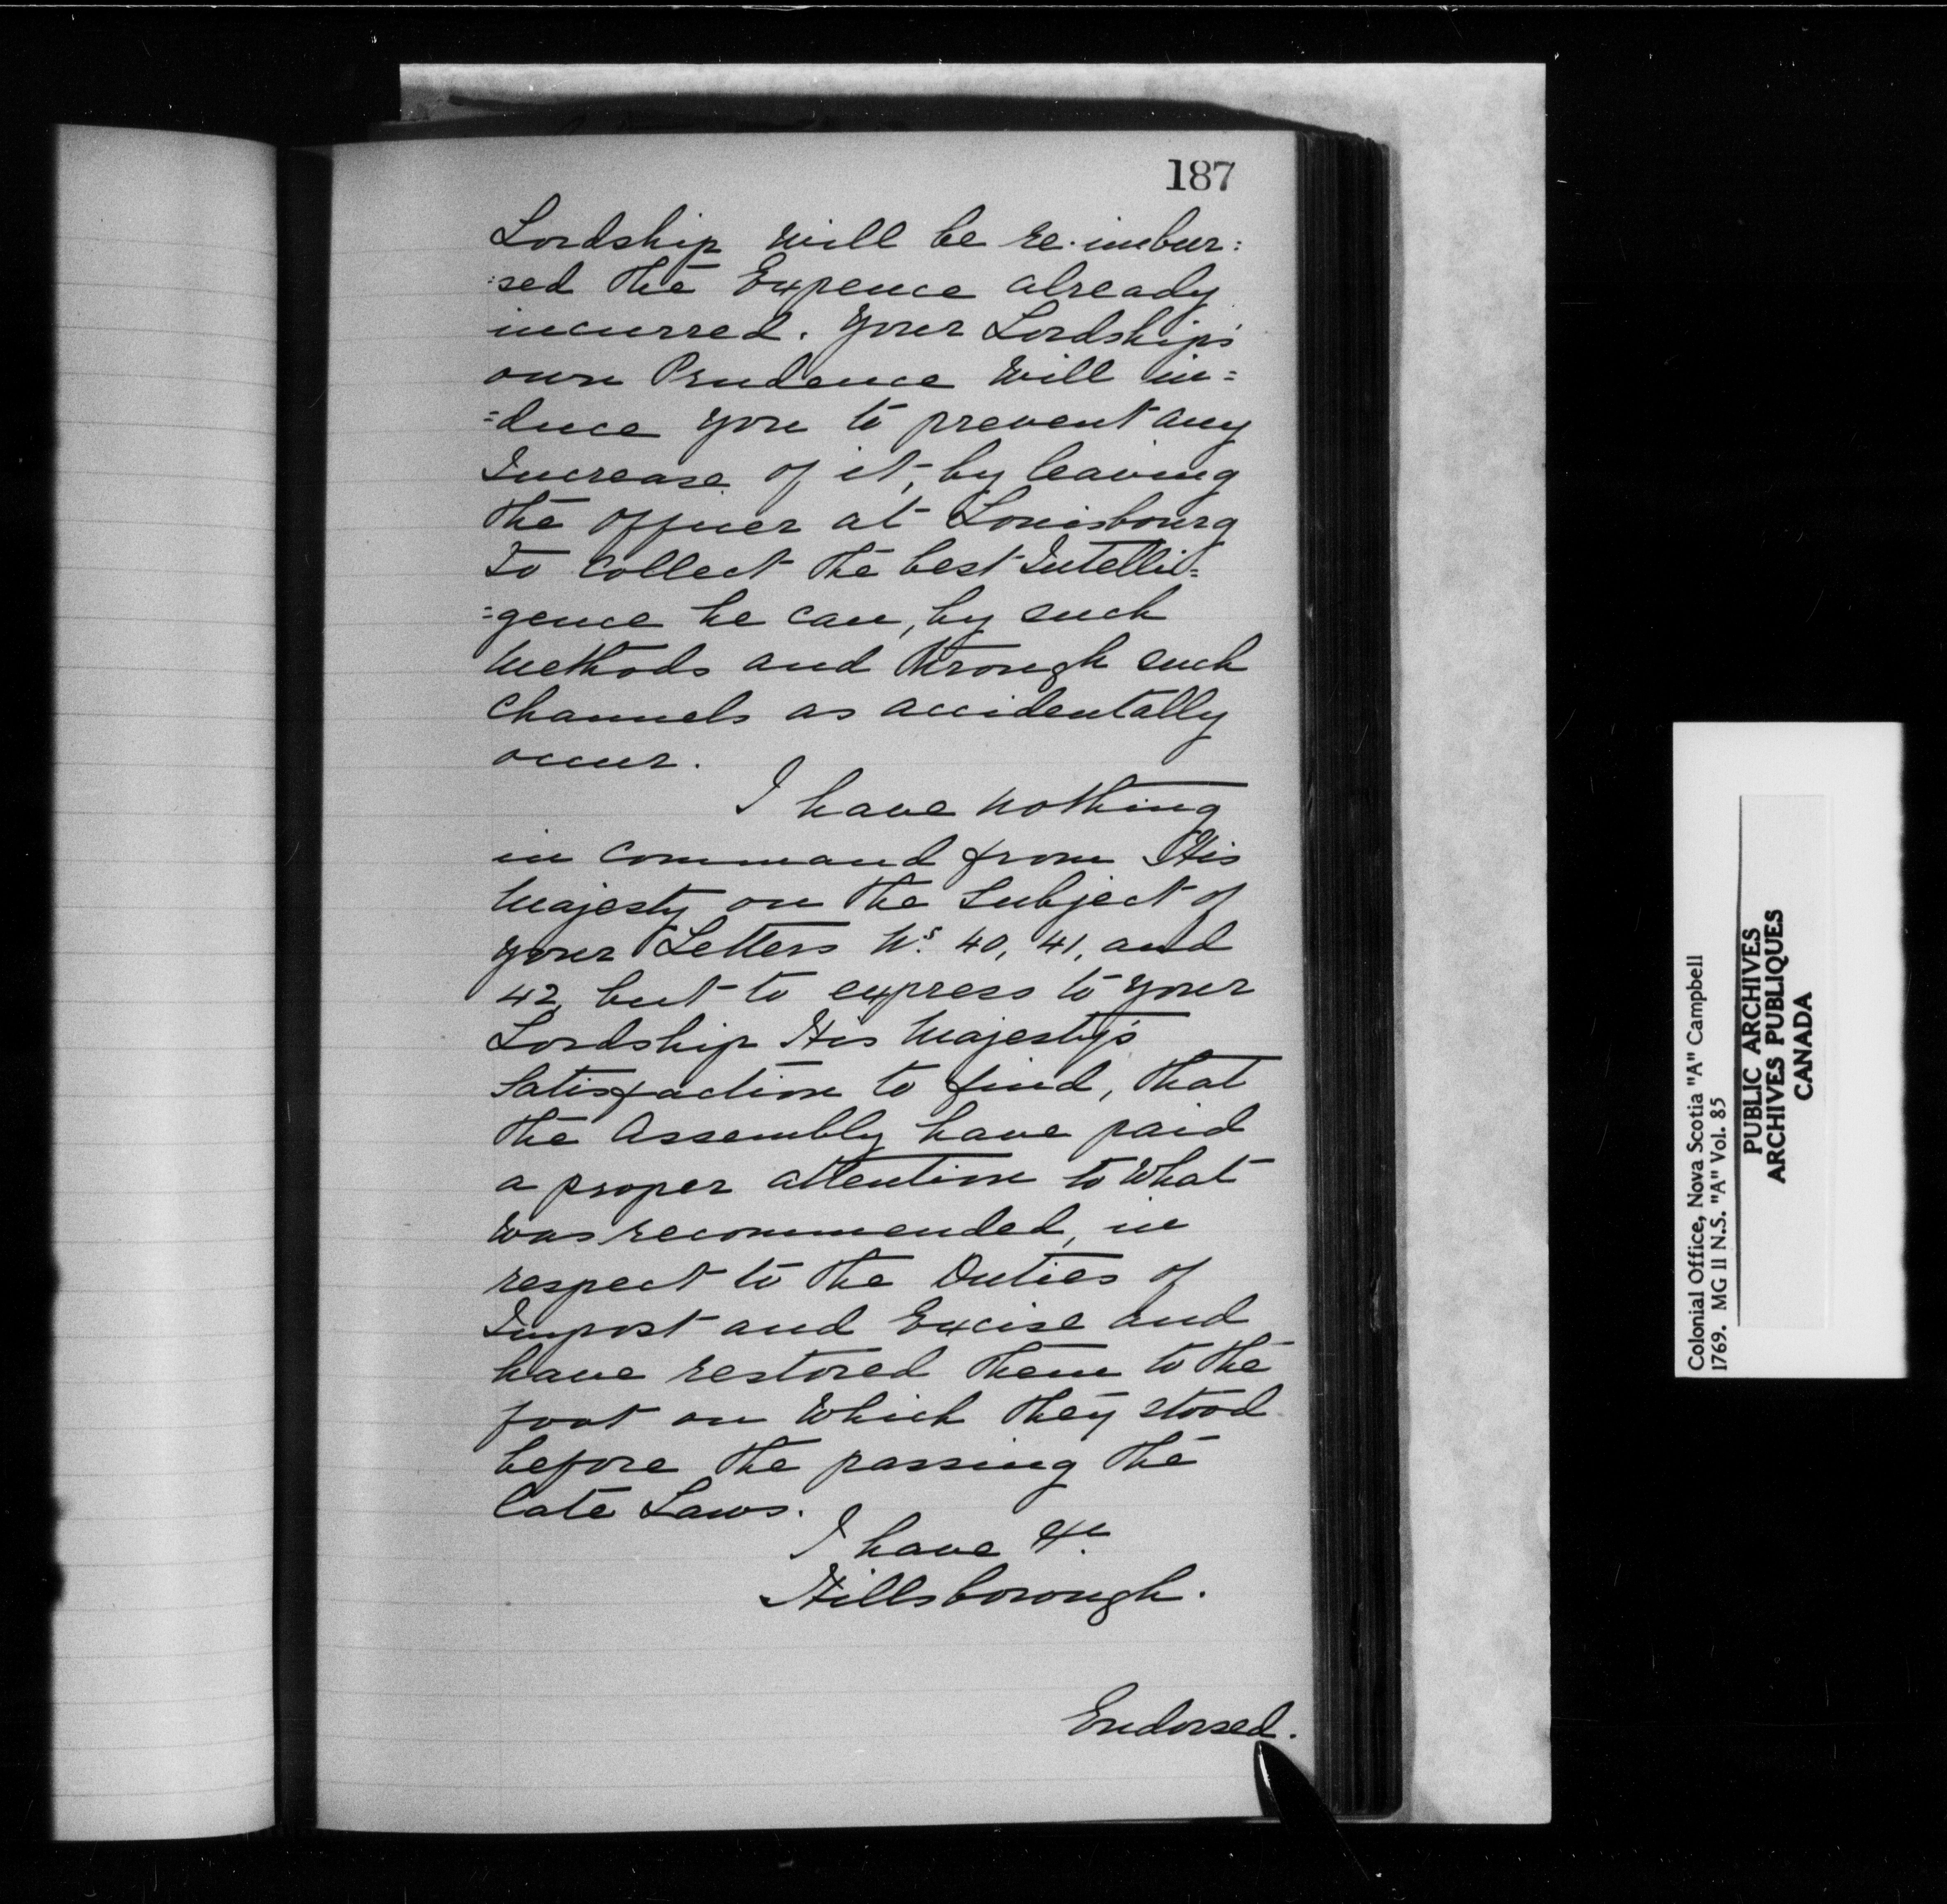 187
Lordship will be re-imbur:
:sed the Expence already
incurred. Your Lordship's
own Prudence will in=
=duce you to prevent any
Increase of it, by leaving
the officer at Louisbourg
to collect the best Intelli=
=gence he can, by such
Methods and through such
Channels as accidentally
occur.
I have nothing
in command from His
Majesty on the subject of
your Letters Ns. 40, 41, and
42, but to express to your
Lordship His Majesty's
Satisfaction to find, that
the Assembly have paid
a proper attention to what
was recommended, in
respect to the Duties of
Impost and Excise and
have restored them to the
foot on which they stood
before the passing the
late Laws.
I have &c.
Hillsborough.
Endorsed.
Colonial Office, Nova Scotia "A" Campbell
1769. MG 11 N.S. "A" Vol. 85
PUBLIC ARCHIVES
ARCHIVES PUBLIQUES
CANADA